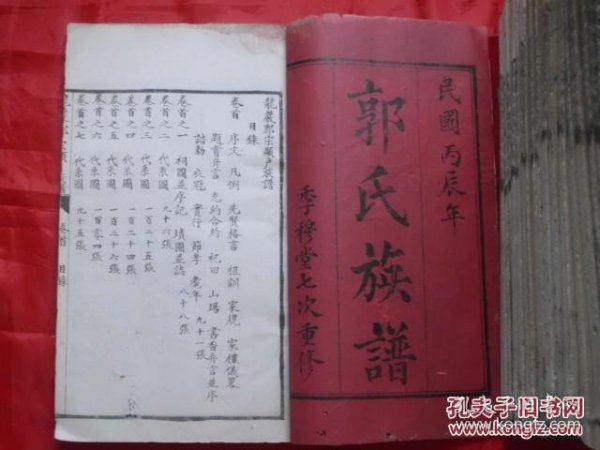 民國丙辰年
郭氏族譜
季穆堂七次重修
龍巖郭宗顯户族譜
目錄
卷首 序文 凡例 先賢格言 祖訓 家規 家禮儀畧
題賣弁言 先約合約 祀田 山場 書香弁言並序
誥勅 衣冠 實行 節孝 耄年 九十一張
卷首之一 祠圖並序記 墳圖並誌 八十八張
卷首之二 代系圖 九十六張
卷首之三 代系圖 一百二十五張
卷首之四 代系圖 一百二十四張
卷首之五 代系圖 一百二十六張
卷首之六 代系圖 一百零四張
卷首之七 代系圖 九十五張
卷首 目錄
孔夫子旧书网
KONGFZ.COM